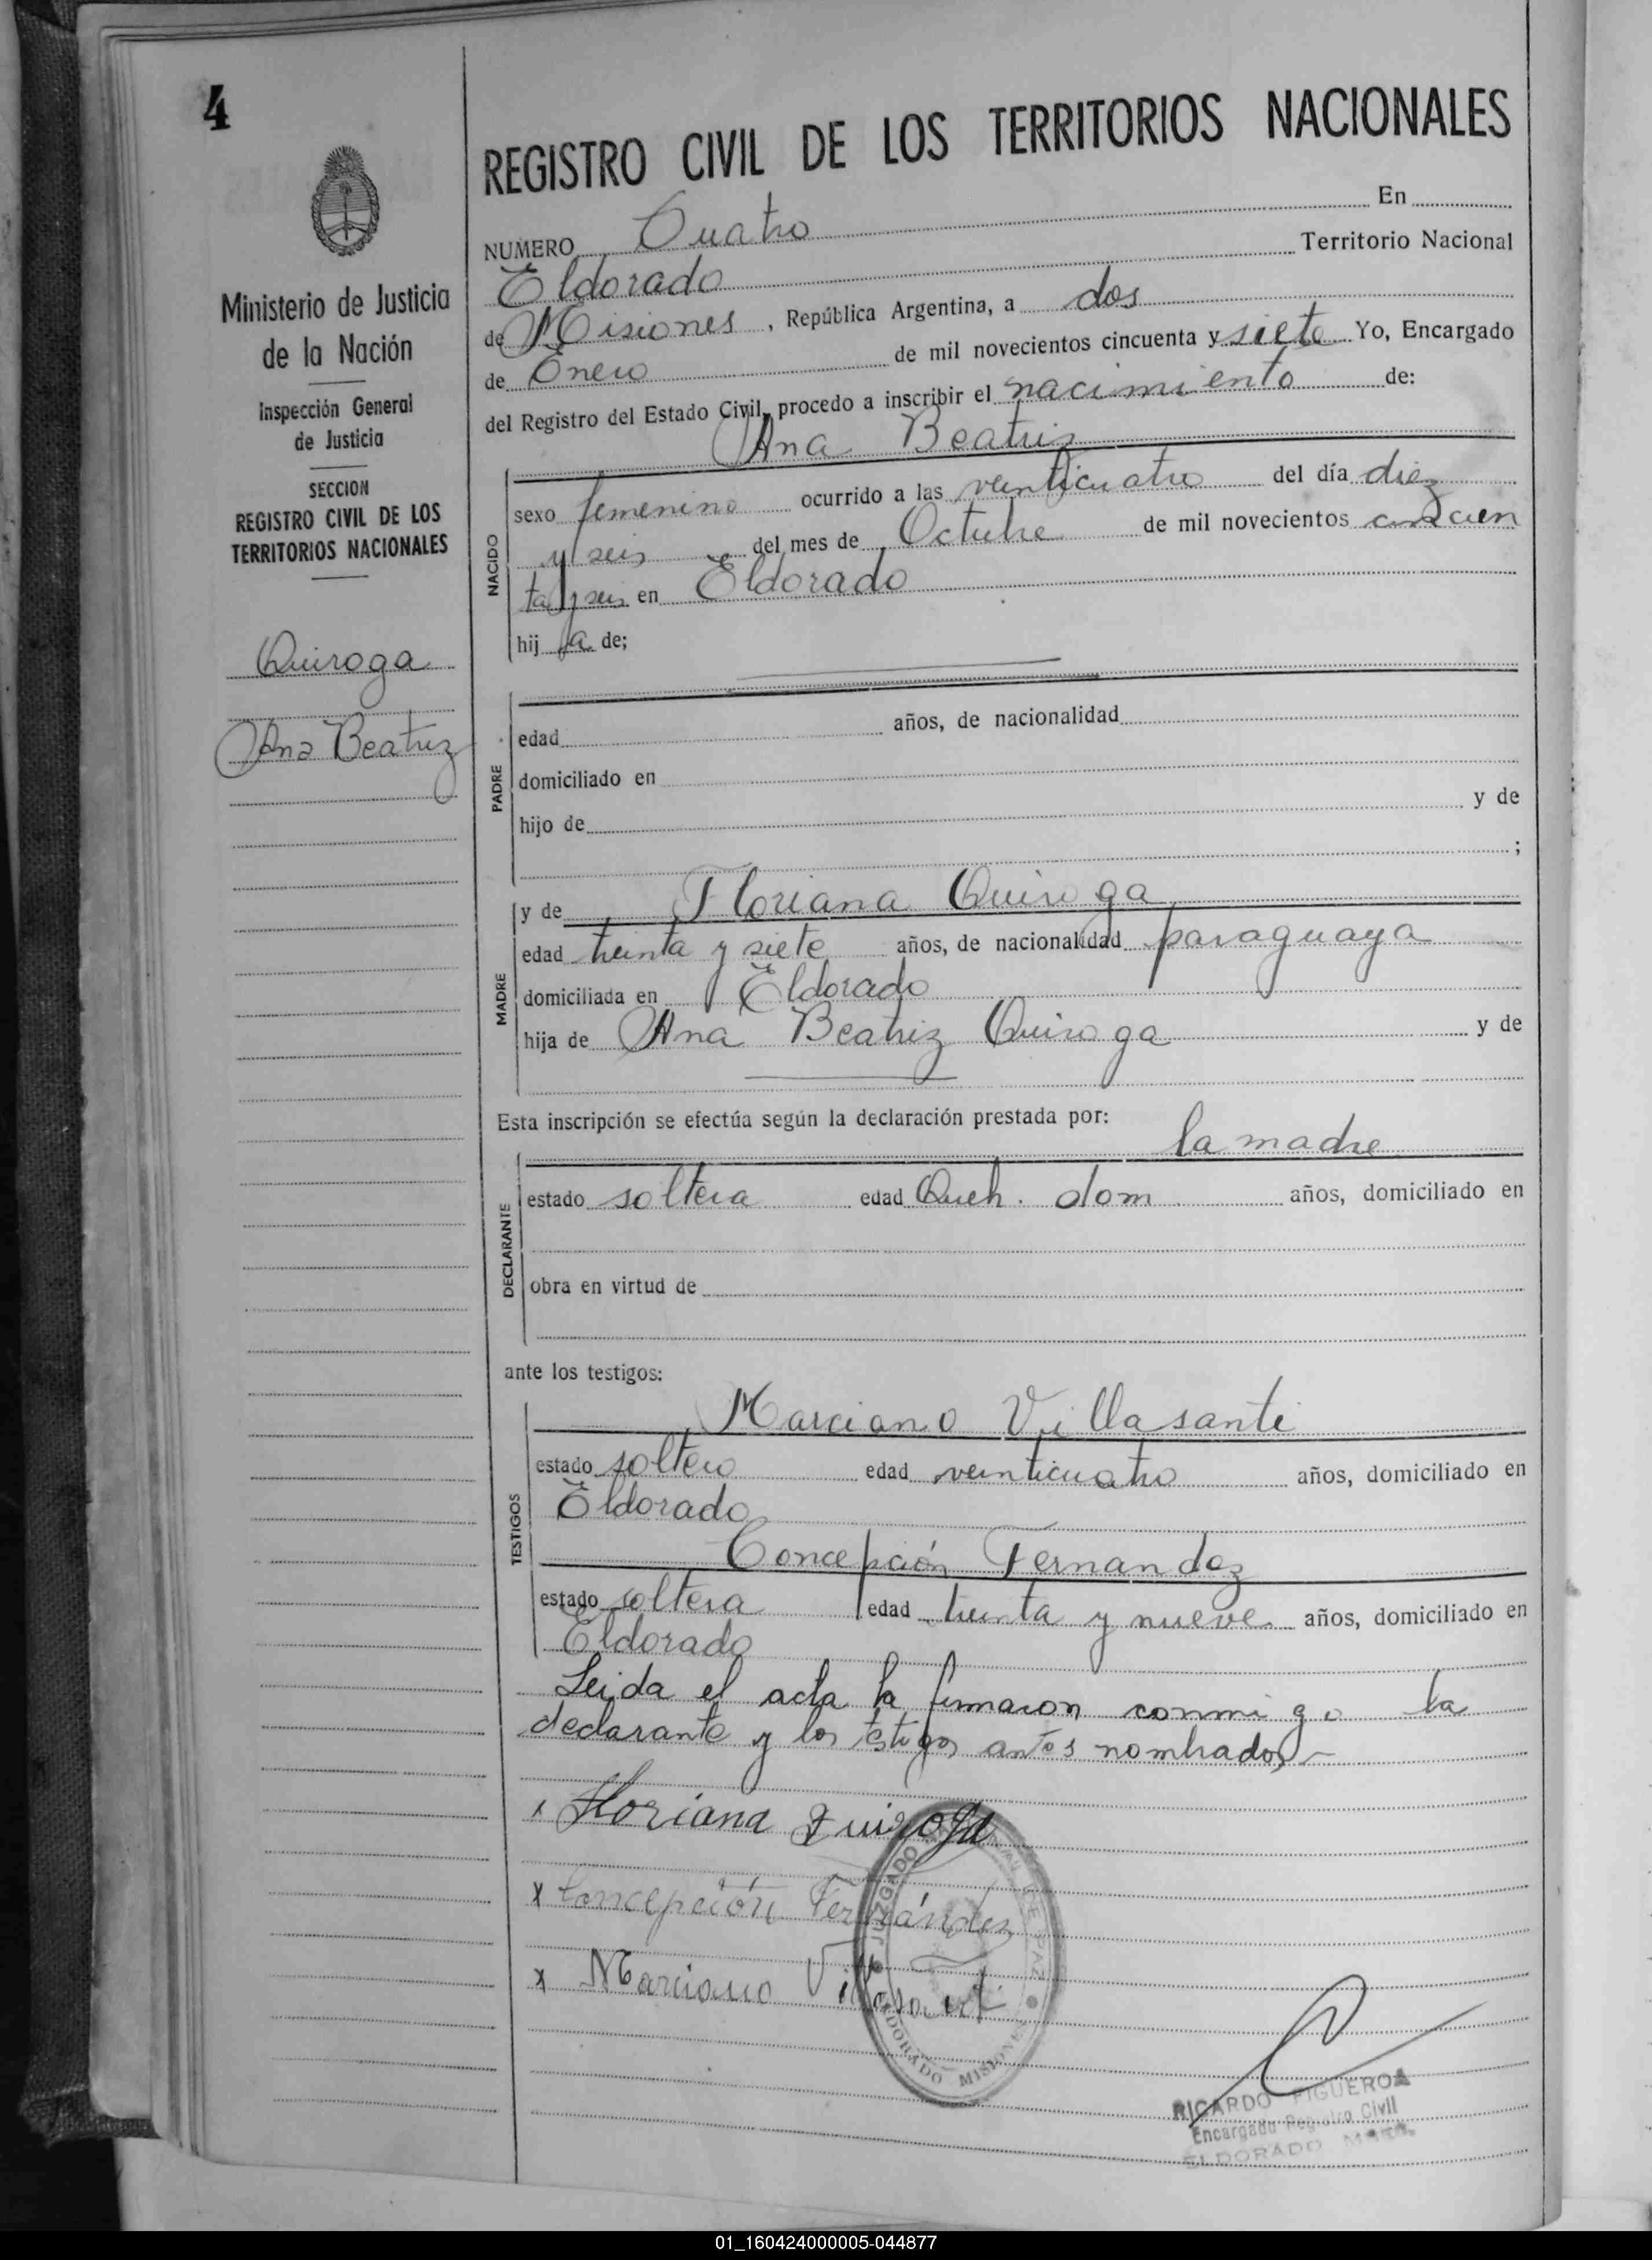 4
REGISTRO CIVIL DE LOS TERRITORIOS NACIONALES
Ministerio de Justicia
de la Nación
Inspección General
de Justicia
SECCION
REGISTRO CIVIL DE LOS
TERRITORIOS NACIONALES
Quiroga
Ana Beatriz
NUMERO Cuatro En
Eldorado Territorio Nacional
de Misiones, República Argentina, a dos
de Enero de mil novecientos cincuenta y siete Yo, Encargado
del Registro del Estado Civil, procedo a inscribir el nacimiento de:
NACIDO
Ana Beatriz
sexo femenino ocurrido a las veinticuatro del día diez
y seis del mes de Octubre de mil novecientos cincuen
ta y seis en Eldorado
hij a de;
PADRE
edad años, de nacionalidad
domiciliado en
hijo de y de
;
MADRE
y de Floriana Quiroga
edad treinta y siete años, de nacionalidad paraguaya
domiciliada en Eldorado
hija de Ana Beatriz Quiroga y de
Esta inscripción se efectúa según la declaración prestada por:
DECLARANTE
la madre
estado soltera edad Queh. dom años, domiciliado en
obra en virtud de
ante los testigos:
TESTIGOS
Marciano Villasanti
estado soltero edad veinticuatro años, domiciliado en
Eldorado
Concepción Fernandez
estado soltera edad treinta y nueve años, domiciliado en
Eldorado
Leida el acta la firmaron conmigo la
declarante y los testigos antes nombrados
x Floriana Quiroga
x Concepción Fernández
x Marciano Villasanti
JUZGADO DE PAZ
ELDORADO MISIONES
RICARDO FIGUEROA
Encargado Registro Civil
ELDORADO
01_160424000005-044877